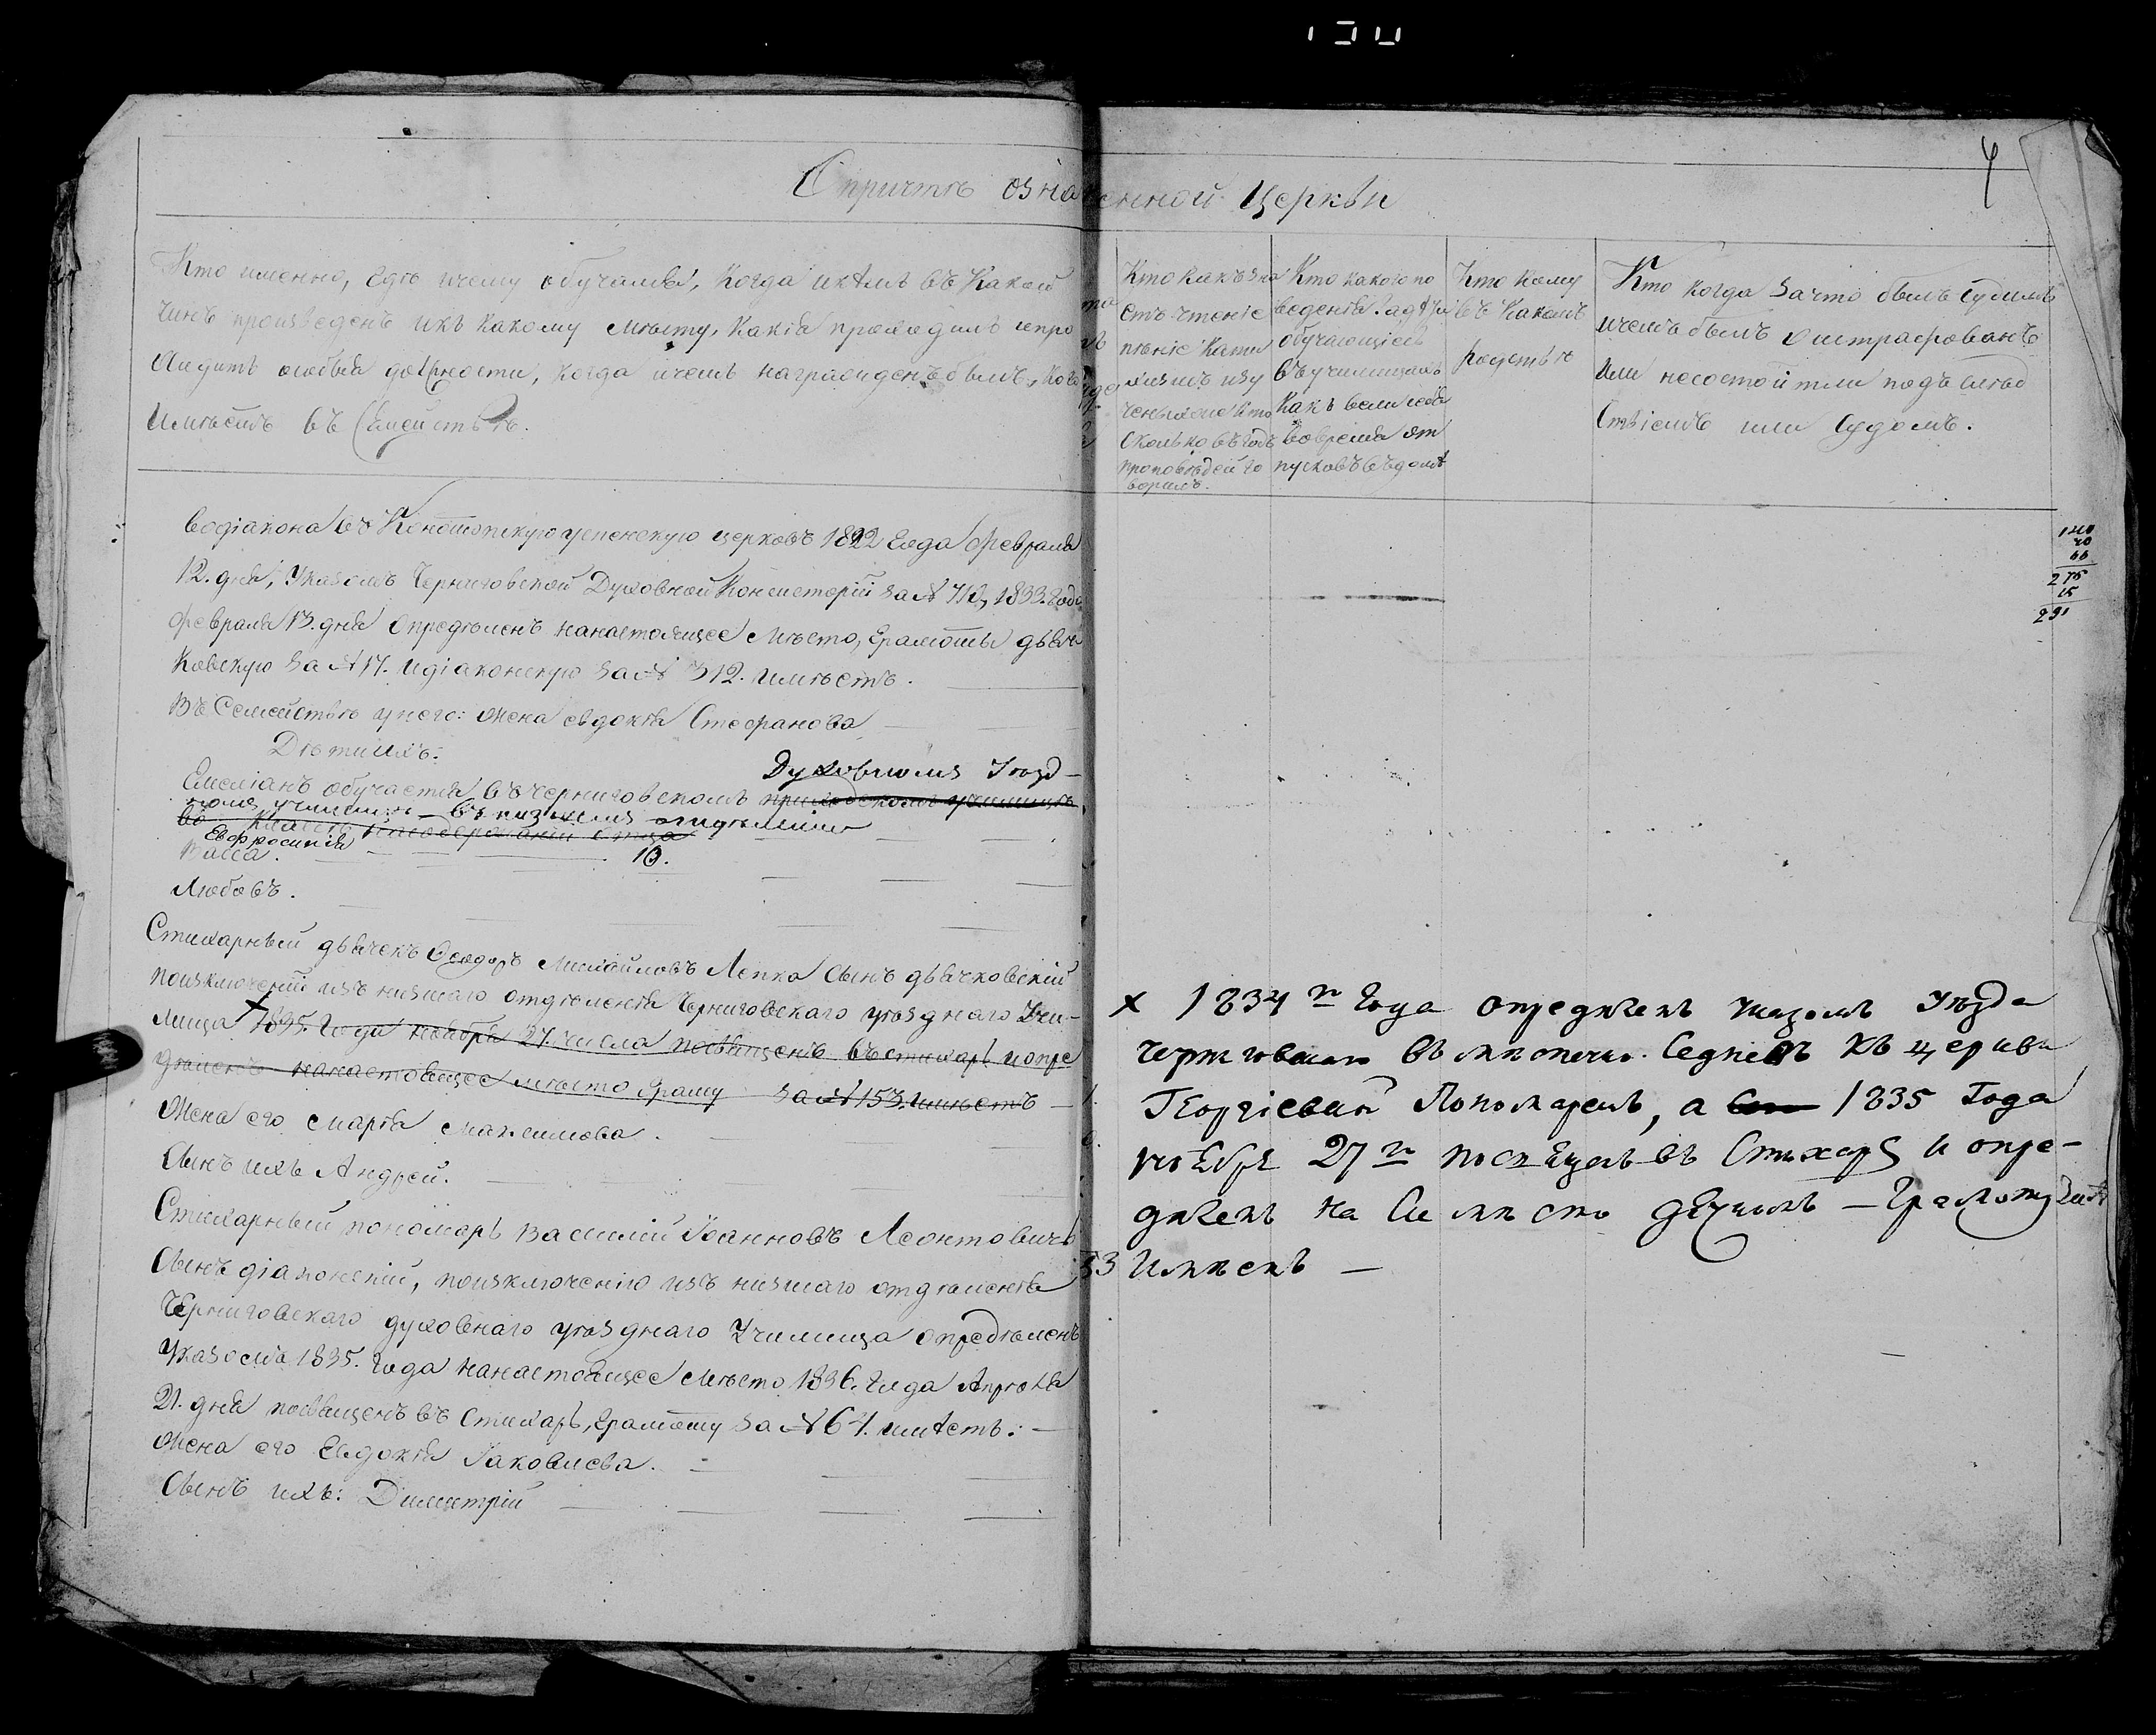 О причтѣ означенной Церкви
Кто именно, гдѣ и чему обучался, когда и кѣмъ въ какой
чинъ произведенъ и къ какому мѣсту, какія проходилъ и про
ходитъ особыя должности, когда и чемъ награжденъ былъ, кого
имѣетъ въ Семействѣ.
Кто какъ зна
етъ чтеніе
пѣніе Кати
хизисъ изу
ченъ и кто
сколько въ годъ
проповѣдей го
ворилъ.
Кто какого по
веденія
обучающіеся
въ училищахъ
какъ вели себя
во время от
пусковъ въ домѣ
Кто кому
въ какомъ
родствѣ
Кто когда за что былъ судимъ
и чемъ былъ оштрафованъ
или не состоитъ ли подъ слѣд
ствіемъ или судомъ.
во діакона въ Конотопскую успенскую церковъ 1822 года февраля
12. дня, Указомъ Черниговской Духовной Консисторіи за № 712, 1833. года
февраля 13. дня опредѣленъ на настоящее мѣсто, грамоты дьяч
ковскую за № 17. и діаконскую за № 312. имѣетъ.
Въ Семействѣ у него: жена евдокія Стефанова
Дѣти ихъ:
Духовномъ Уѣзд-
Емеліанъ обучается въ черниговскомъ приходскомъ училищѣ
номъ училищѣ въ низшемъ отдѣленіи
на содержаніи отца
Евфросинія
Васса. 10.
Любовъ.
Стихарный дьячекъ Ѳеодоръ Михайловъ Лепка сынъ дьячковскій
по изключеніи изъ низшаго отдѣленія Черниговскаго уѣзднаго Учи-
лища × 1835. года ноября 27. числа посвященъ въ стихарь и опре
дѣленъ на настоящее мѣсто грамоту за № 153. имѣетъ
Жена его марѳа максимова.
Сынъ ихъ Андрей.
Стихарный пономарь Василій Іоанновъ Леонтовичъ
сынъ діаконскій, по изключенію изъ низшаго отдѣленія
Черниговскаго духовнаго уѣзднаго Училища опредѣленъ
Указомъ 1835. года на настоящее мѣсто 1836. года Апрѣля
21. дня посвященъ въ стихарь, грамоту за № 64. имѣетъ.
Жена его Евдокія Іаковлева.
Сынъ ихъ: Димитрій
120
40
66
275
15
291
× 1834 го Года опредѣленъ указомъ Уѣзда
Черниговскаго въ мѣстечко Седневъ къ церкви
Георгіевкой Пономаремъ, а 1835 Года
ноября 27 го посвященъ въ Стихарь и опре-
дѣленъ на Сіе мѣсто дячкомъ — Грамоту за №
53 Имѣетъ —